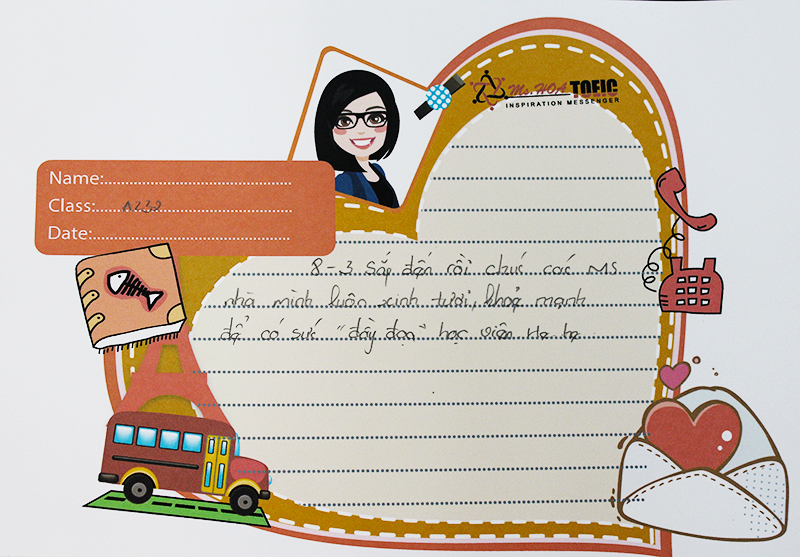 Ms. HOA TOEIC
INSPIRATION MESSENGER
Name:
Class: A232
Date:
8-3 Sắp đến rồi chúc các Ms
nhà mình luôn xinh tươi, khoẻ mạnh
để có sức "đày đọa" học viên He he